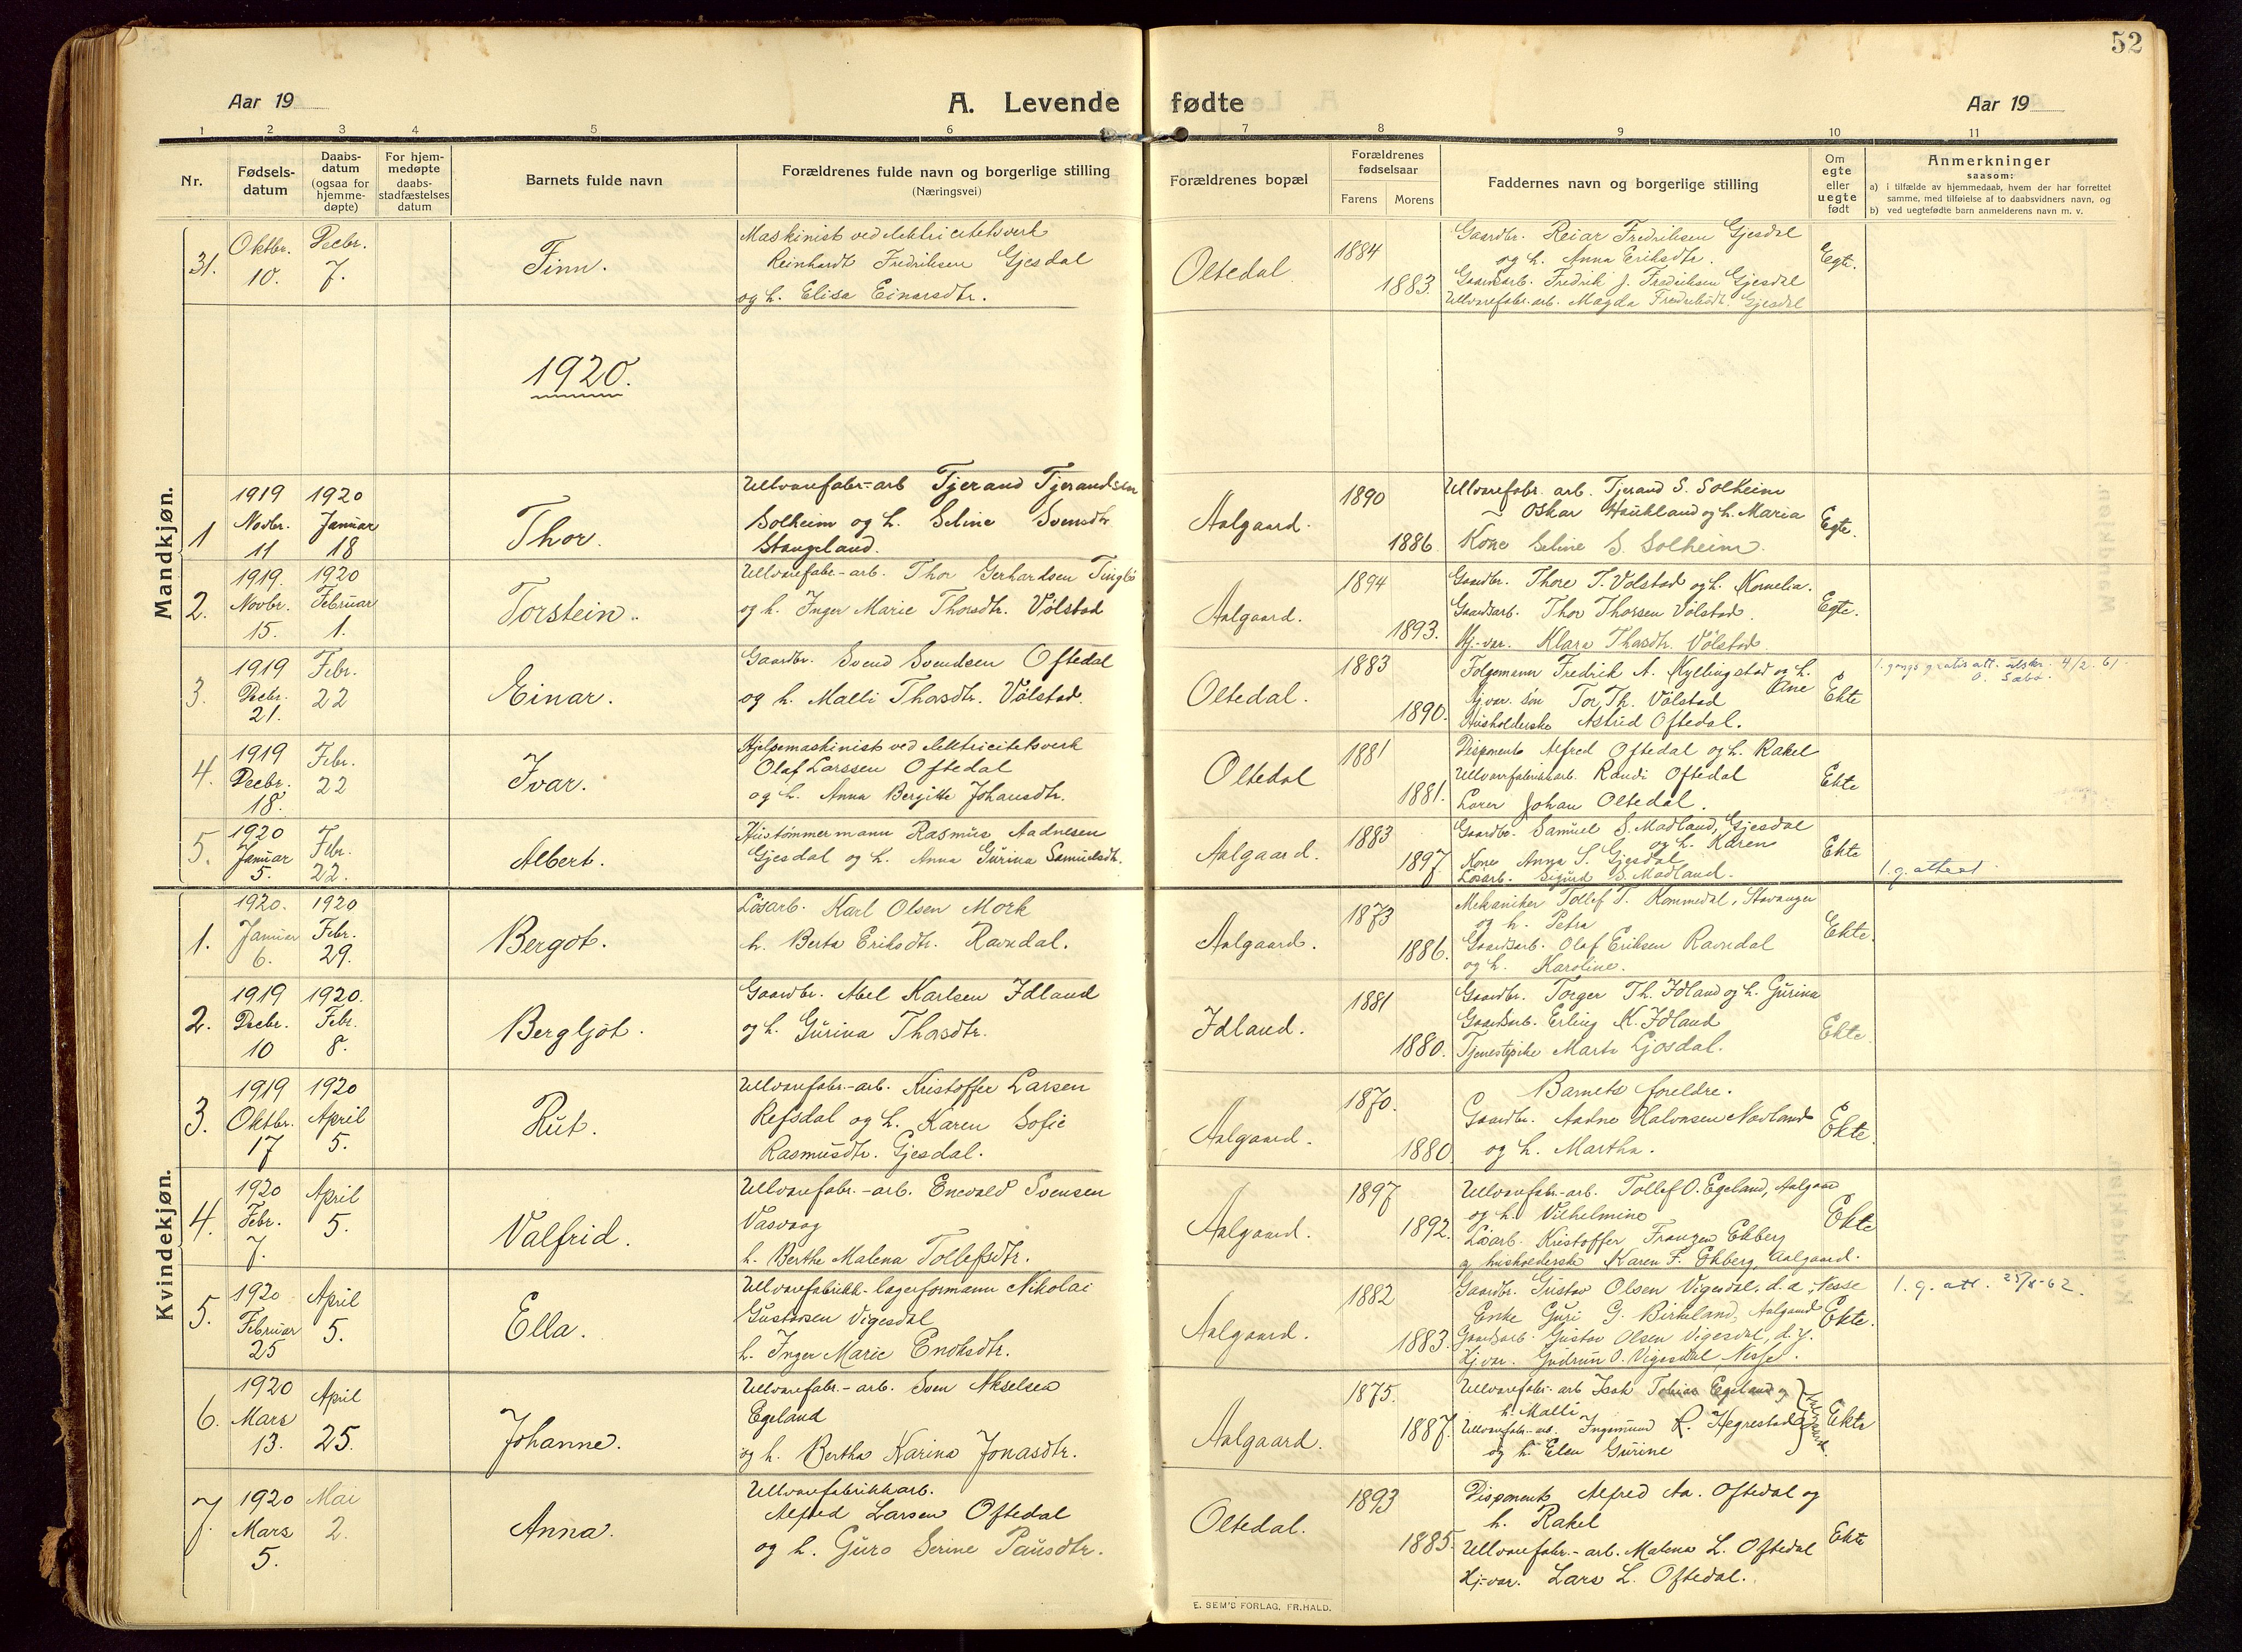 52
Aar 19
A. Levende fødte
Aar 19
1 2 3 4 5 6 7 8 9 10 11
Nr.
Fødsels-
datum
Daabs-
datum
(ogsaa for
hjemme-
døpte)
For hjem-
medøpte
daabs-
stadfæstelses
datum
Barnets fulde navn
Forældrenes fulde navn og borgerlige stilling
(Næringsvei)
Forældrenes bopæl
Forældrenes
fødselsaar
Farens Morens
Faddernes navn og borgerlige stilling
Om
egte
eller
uegte
født
Anmerkninger
saasom:
a) i tilfælde av hjemmedaab, hvem der har forrettet
samme, med tilføielse av to daabsvidners navn, og
b) ved uegtefødte barn anmelderens navn m. v.
Mandkjøn.
31. Oktbr. 10. Decbr. 7.
Finn.
Maskinist ved elektricitetsverk
Reinhardt Fredriksen Gjesdal
og h. Elisa Einarsdtr.
Oltedal
1884
1883.
Gaardbr. Reiar Fredriksen Gjesdal
og h. Anna Eriksdtr.
Gaardsarb. Fredrik J. Fredriksen Gjesdal
Ullvarefabr. arb. Magda Fredriksdt. Gjesdal
Egte.
1920.
1 1919 Novbr. 11 1920 Januar 18
Thor.
Ullvarefabr-arb Tjerand Tjerandsen
Solheim og h. Seline Svensdtr
Stangeland.
Aalgaard.
1890
1886
Ullvarefabr. arb. Tjerand S. Solheim
~ Oskar Haukland og h. Maria
Kone Seline S. Solheim.
Egte.
2. 1919. Novbr. 15. 1920 Februar 1.
Torstein.
Ullvarefabr.-arb. Thor Gerhardsen Tingbø
og h. Inger Marie Thorsdtr. Vølstad
Aalgaard.
1894
1893.
Gaardbr. Thore T. Volstad og h. Kornelia.
Gaardsarb. Thor Thorsen Vølstad.
Hj.-var. Klara Thorsdtr. Vølstad
Egte.
3. 1919 Decbr. 21. Febr. 22
Einar.
Gaardbr. Svend Svendsen Oftedal
og h. Malli Thorsdtr. Vølstad.
Oltedal.
1883
1890.
Følgemann Fredrik A. Kyllingstad og h.
Ane
Hj.var. søn Tor Th. Vølstad
Husholderske Astrid Oftedal.
Ekte
1. gangs gratis att. utskr. 4/2. 61.
O. Sæbø.
4. 1919 Decbr. 18. Febr. 22
Ivar.
Hjelpemaskinist ved elektricitetsverk
Olaf Larssen Oftedal
og h. Anna Bergitte Johansdtr.
Oltedal
1881
1881.
Disponent Alfred Oftedal og h. Rakel
Ullvarefabrikkarb. Randi Oftedal
Lærer Johan Oltedal.
Ekte
5. 1920 Januar 5. Febr. 22.
Albert.
Hustømmermann Rasmus Aadnesen
Gjesdal og h. Anna Gurina Samuelsdtr.
Aalgaard.
1883
1897
Gaardbr. Samuel S. Madland, Gjesdal
og h. Karen
Kone Anna S. Gjesdal
Løsarb. Sigurd S. Madland.
Ekte
1. g. attest
Kvindekjøn.
1. 1920. Januar 6. 1920 Febr. 29.
Bergot.
Løsarb. Karl Olsen Mork
h. Berta Eriksdtr. Ravndal.
Aalgaard.
1873
1886.
Mekaniker Tollef T. Kommedal, Stavanger
og h. Petra
Gaardsarb. Olaf Eriksen Ravndal
og h. Karoline.
Ekte.
2. 1919 Decbr. 10 1920. Febr. 8.
Bergljot.
Gaardbr. Abel Karlsen Idland
og h. Gurina Thorsdtr.
Idland.
1881
1880.
Gaardbr. Torger Th. Idland og h. Gurina
Gaardsarb. Erling K. Idland
Tjenestepike Marta Ljosdal.
Ekte.
3. 1919 Oktbr. 17 1920 April 5.
Rut.
Ullvarefabr.-arb. Kristoffer Larsen
Refsdal og h. Karen Sofie
Rasmusdtr. Gjesdal.
Aalgaard.
1870.
1880.
Barnets foreldre.
Gaardbr. Aadne Halvorsen Nødland
og h. Martha.
Ekte.
4. 1920 Febr. 7. April 5.
Valfrid.
Ullvarefabr.-arb. Enevald Svensen
Vasvaag
h. Berthe Malena Tollefsdtr.
Aalgaard.
1897
1892.
Ullvarefabr.-arb. Tollef O. Egeland, Aalgaard
og h. Vilhelmine
Løsarb. Kristoffer Franzen Ekberg
og husholderske Karen F. Ekberg Aalgaard.
Ekte
5. 1920 Februar 25 April 5.
Ella.
Ullvarefabrikk-lagerformann Nikolai
Gustavsen Vigesdal
h. Inger Marie Enoksdtr.
Aalgaard.
1882
1883.
Gaardbr. Gustav Olsen Vigesdal, d. a., Nesse
Enke Guri G. Birkeland, Aalgaard
Gaardsarb. Gustav Olsen Vigesdal, d. y.
Hj.var. Gudrun O. Vigesdal Nesse.
Ekte.
1. g. att. 25/8-62.
6. 1920 Mars 13. April 25.
Johanne.
Ullvarefabr.-arb. Sven Akselsen
Egeland
og h. Bertha Karina Jonasdtr.
Aalgaard.
1875.
1887.
Ullvarefabr. arb Isak Tobias Egeland og
h. Malli
Ullvarefabr.-arb. Ingemund L. Hegrestad
og h. Elen Gurine
Aalgaard.
Ekte
7. 1920 Mars 5. Mai 2.
Anna.
Ullvarefabrikkarb.
Alfred Larsen Oftedal
og h. Guro Serine Pausdtr.
Oltedal.
1893
1885.
Disponent Alfred Aa. Oftedal og
h. Rakel
Ullvarefabr.-arb. Malena L. Oftedal
Hj-var. Lars L. Oftedal.
Ekte
E. SEM'S FORLAG, FR.HALD.